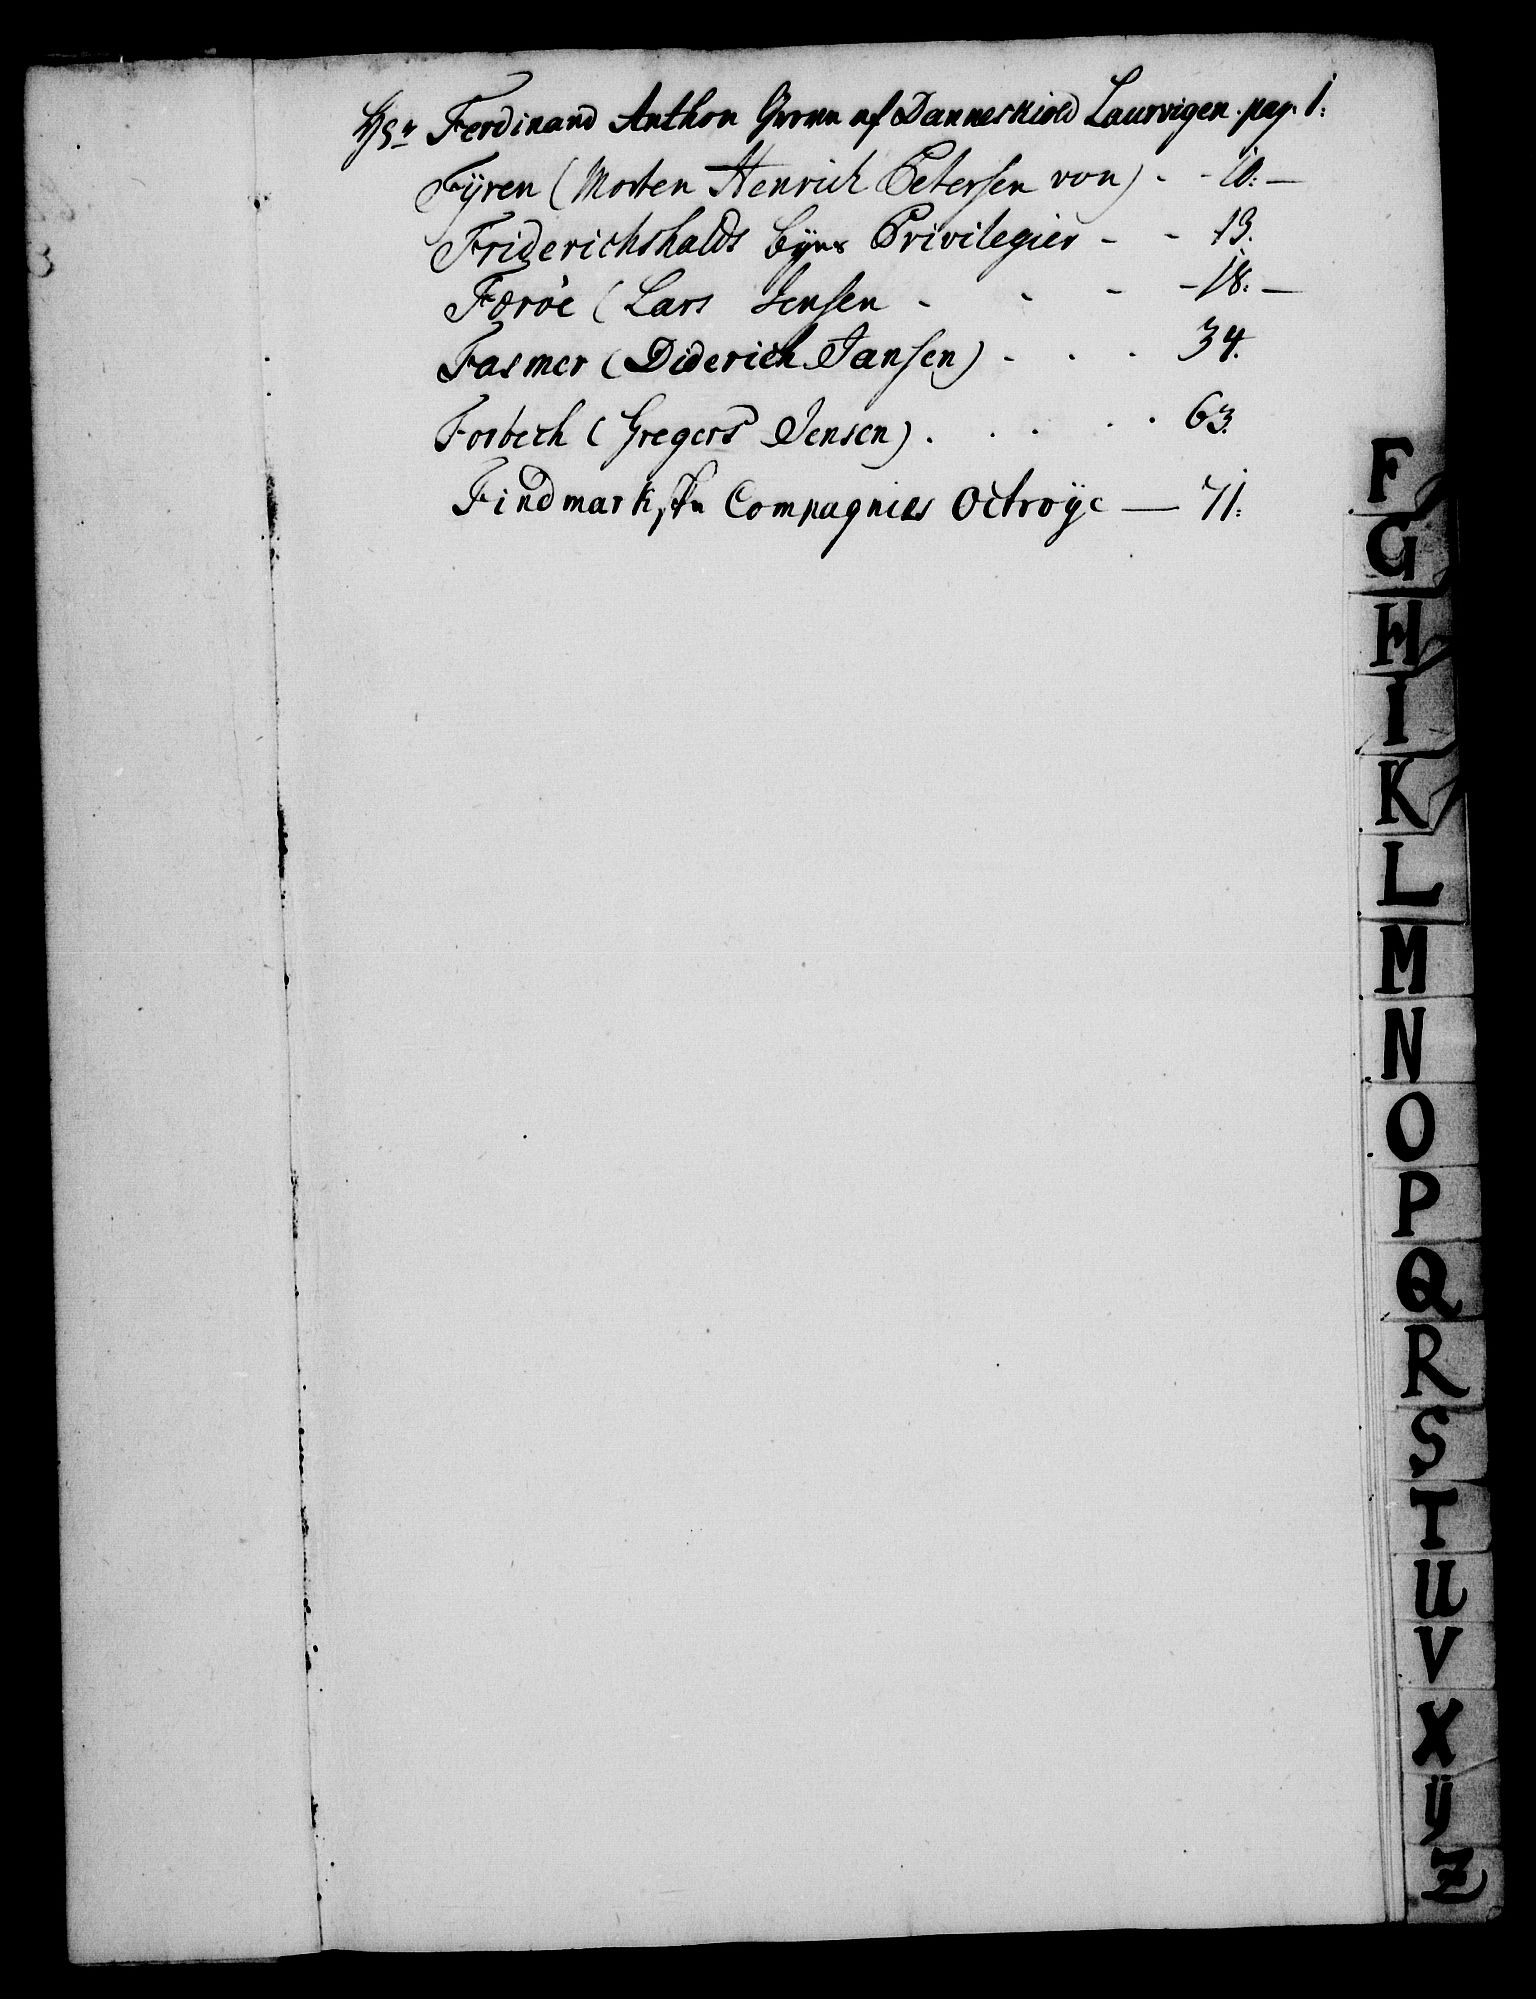 Hr Ferdinand Anthon Grewe af Danneskiold Laurvigen. pag. 1:
Fÿren (Morten Henrich Petersen von) - - 10: —
Friderichshalds Bÿes Privilegier - - 13.
Færöe (Lars Jensen - - - - 18: —
Fasmer (Diderich Jansen) - . . 34.
Forbech (Gregers Jensen) . . . . . 63.
Findmarkske Compagnies Octroÿe — 71:
F
G
H
I
K
L
M
N
O
P
Q
R
S
T
U
V
X
ÿ
Z